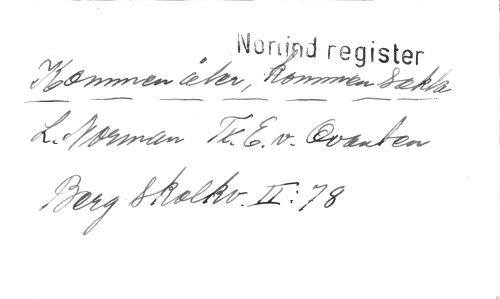 Norlind register
Kommen åter, kommen sakta
L. Norman Tr. E. v. Qvanten
Berg Skolkv. II: 78